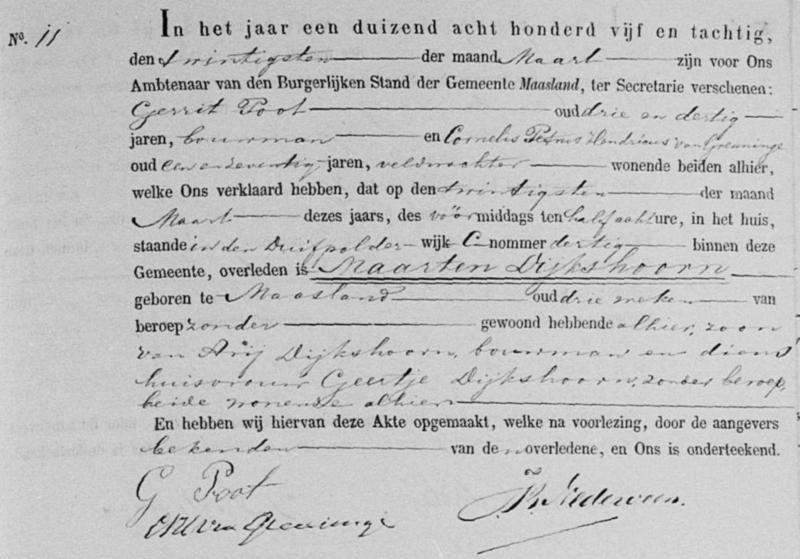 No. 11
In het jaar een duizend acht honderd vijf en tachtig,
den twintigsten der maand Maart zijn voor Ons
Ambtenaar van den Burgerlijken Stand der Gemeente Maasland, ter Secretarie verschenen:
Gerrit Poot oud drie en dertig
jaren, bouwman en Cornelis Petrus Hendricus van Greuninge
oud een en zeventig jaren, veldwachter wonende beiden alhier,
welke Ons verklaard hebben, dat op den twintigsten der maand
Maart dezes jaars, des vóórmiddags ten half acht ure, in het huis,
staande in den Duifpolder wijk C nommer dertig binnen deze
Gemeente, overleden is Maarten Dijkshoorn
geboren te Maasland oud drie weken van
beroep zonder gewoond hebbende alhier, zoon
van Arij Dijkshoorn, bouwman en diens
huisvrouw Geertje Dijkshoorn, zonder beroep,
beide wonende alhier
En hebben wij hiervan deze Akte opgemaakt, welke na voorlezing, door de aangevers
bekenden van de overledene, en Ons is onderteekend.
G Poot